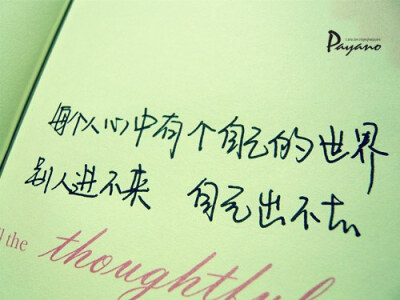 Payano
每个人心中有个自己的世界
别人进不来 自己出不去
the
thoughtful